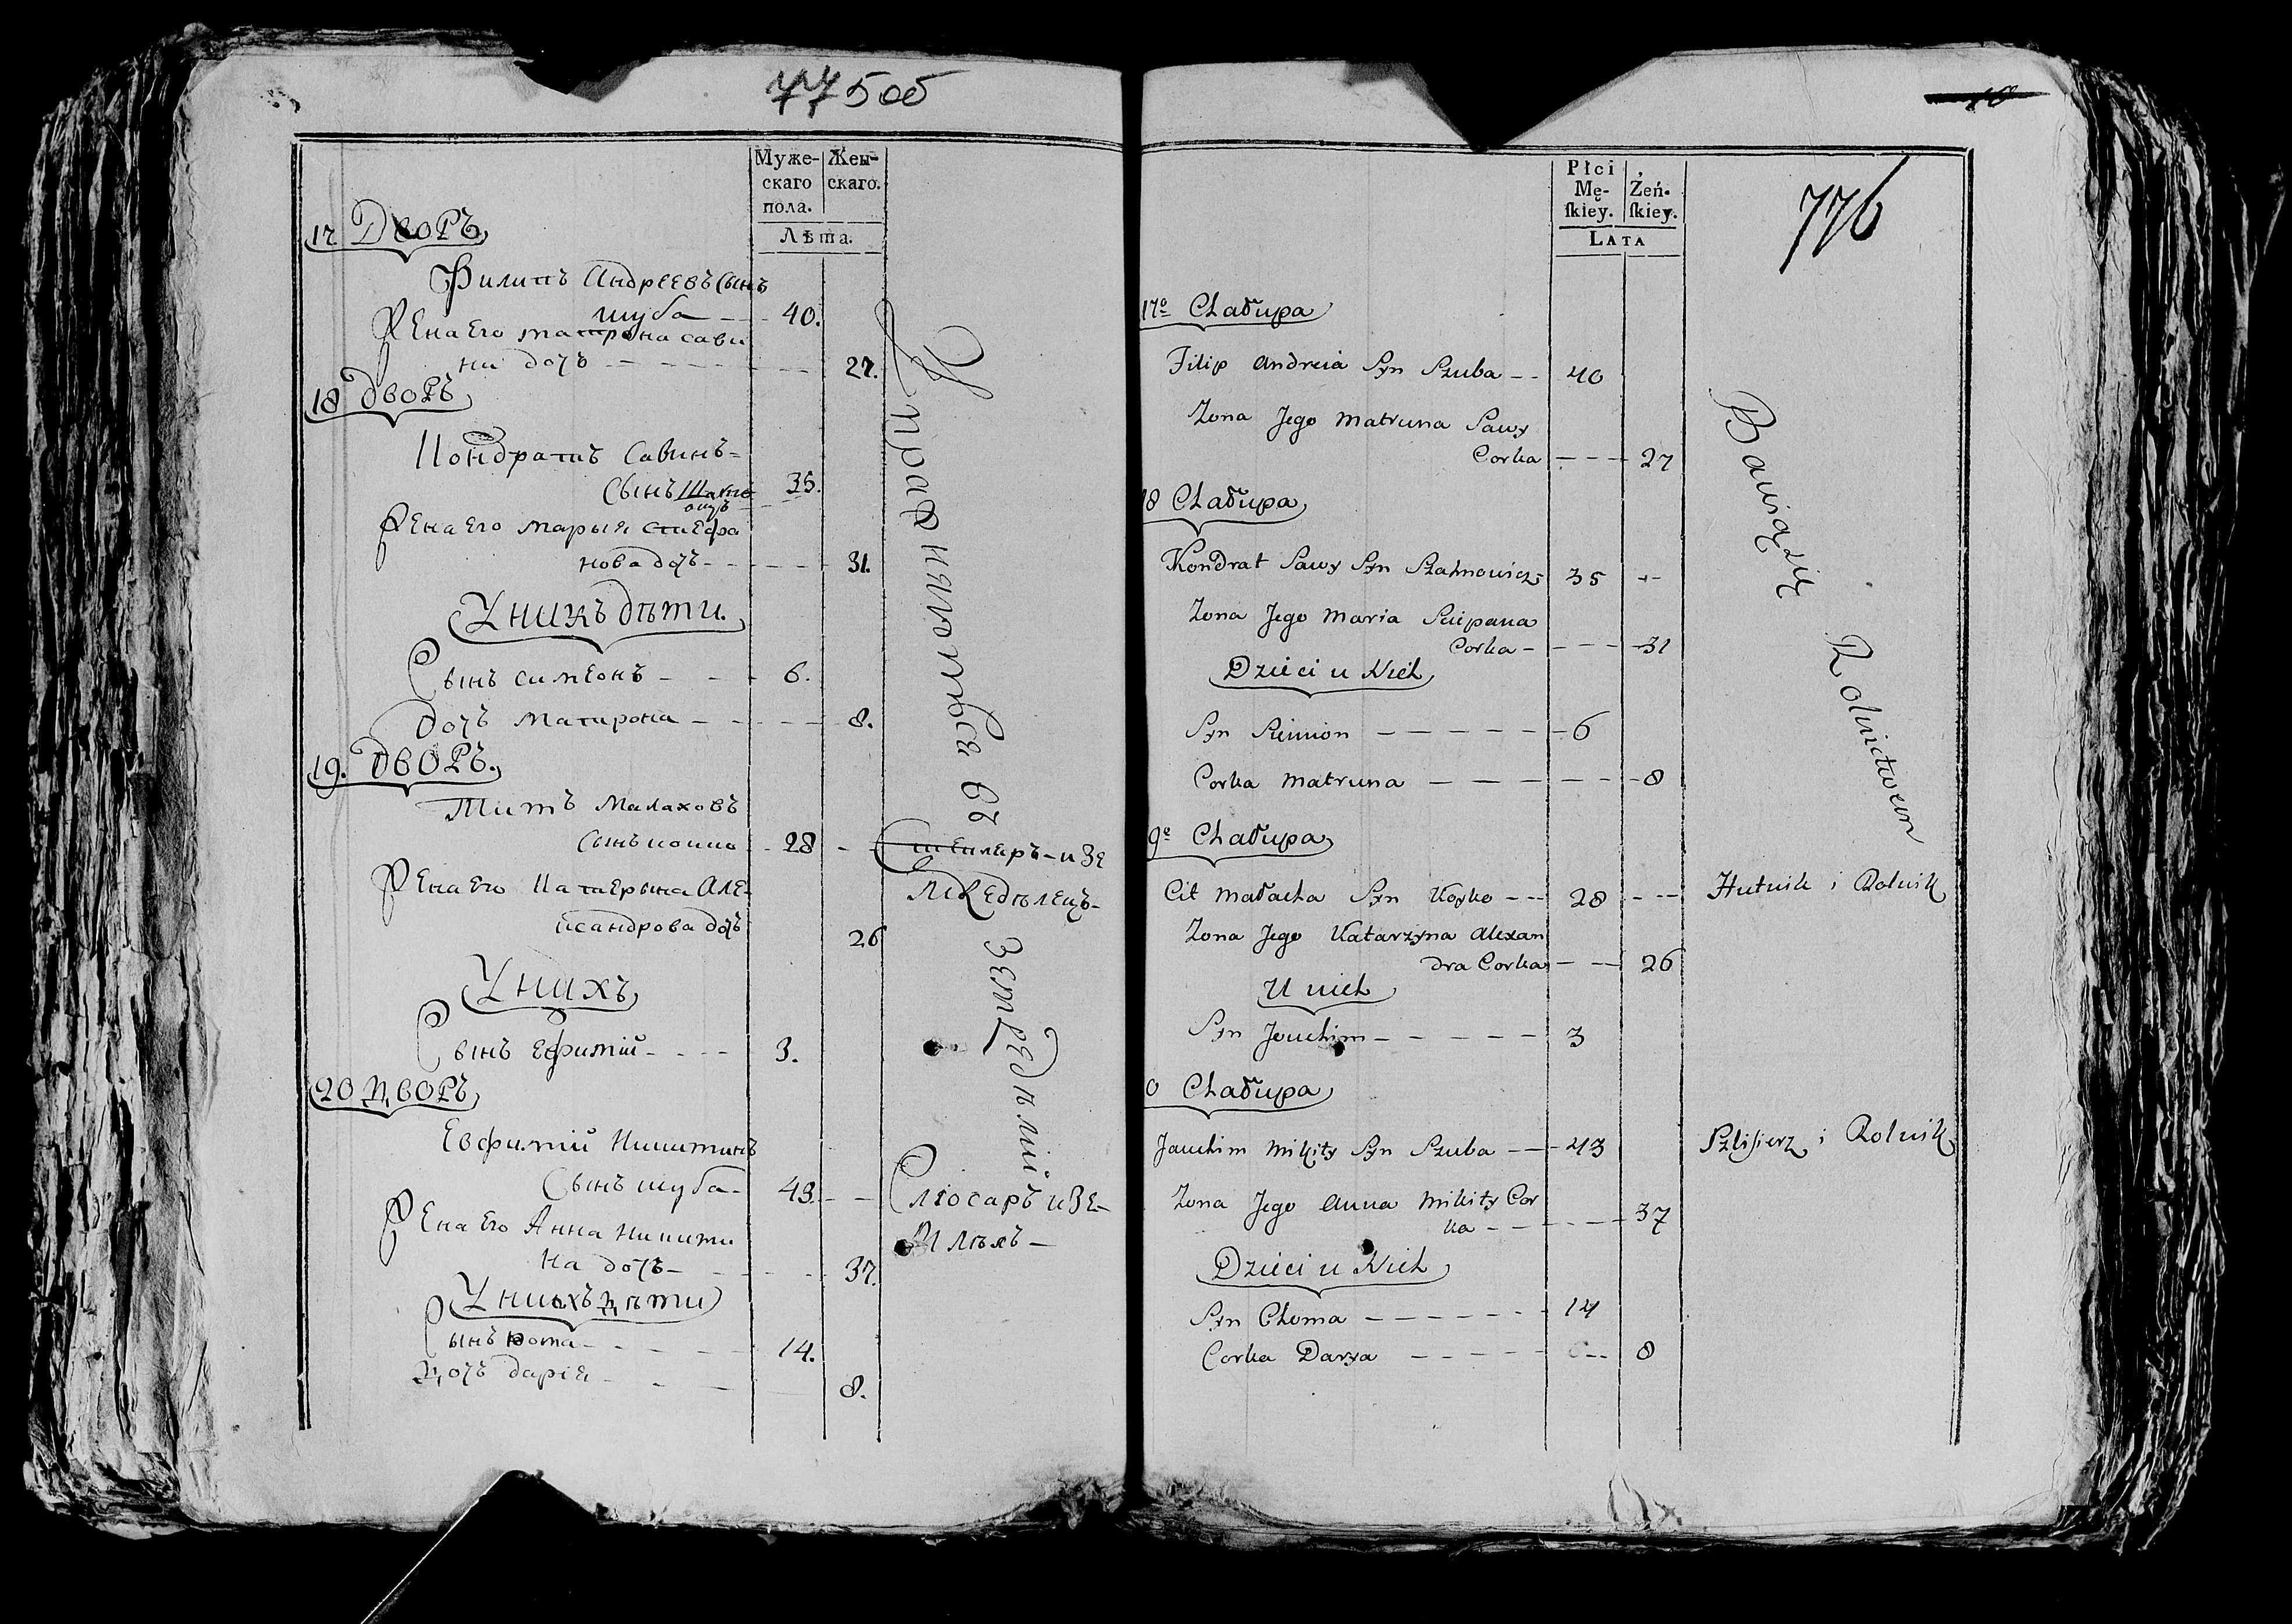 775об
Муже-
скаго
пола.
Жен-
скаго.
Лѣта.
17 Дворъ
Филипъ Андреевъ Сынъ
шуба 40.
Жена Его матрона сави
на дочь 27.
18 Дворъ
Кондратъ Савинъ
Сынъ 35.
Жена Его марья степа
нова дочь 31.
У нихъ дѣти.
Сынъ симеонъ 6.
дочь матрона 8.
19. Дворъ.
Титъ Малаховъ
сынъ койко 28
Жена Его Катерына Але
ксандрова дочь 26
У нихъ
Сынъ Ефимій 3.
20 Дворъ
Евфимій Никитинъ
Сынъ шуба 43.
Жена Его Анна Никити
на дочь 37.
У нихъ дѣти
Сынъ Фома 14.
Дочь дарія 8.
Упражняющся въ земледѣлии
и Зе
мледѣлецъ
Слюсаръ и Зе
776
Płci
Mę-
ſkiey.
Żeń-
ſkiey.
LATA
17º Chałupa
Filip Andreia Syn Szuba 40
Zona Jego Matruna Sawy
Corka 27
18 Chałupa
Kondrat Sawy Syn Szahnowicz 35
Zona Jego Maria Sciepana
Corka 31
Dzieci u Nich
Syn Siemion 6
Corka Matruna 8
9º Chałupa
Cit Małacha Syn Koyko 28 Hutnik i Rolnik
Zona Jego Katarzyna Alexan
dra Corka 26
U nich
Syn Jauchim 3
0 Chałupa
Jauchim Mikity Syn Szuba 43 Szlisierz i Rolnik
Zona Jego Anna Mikity Cor
ka 37
Dzieci u Nich
Syn Choma 14
Corka Darya 8
Bawią się Rolnictwem